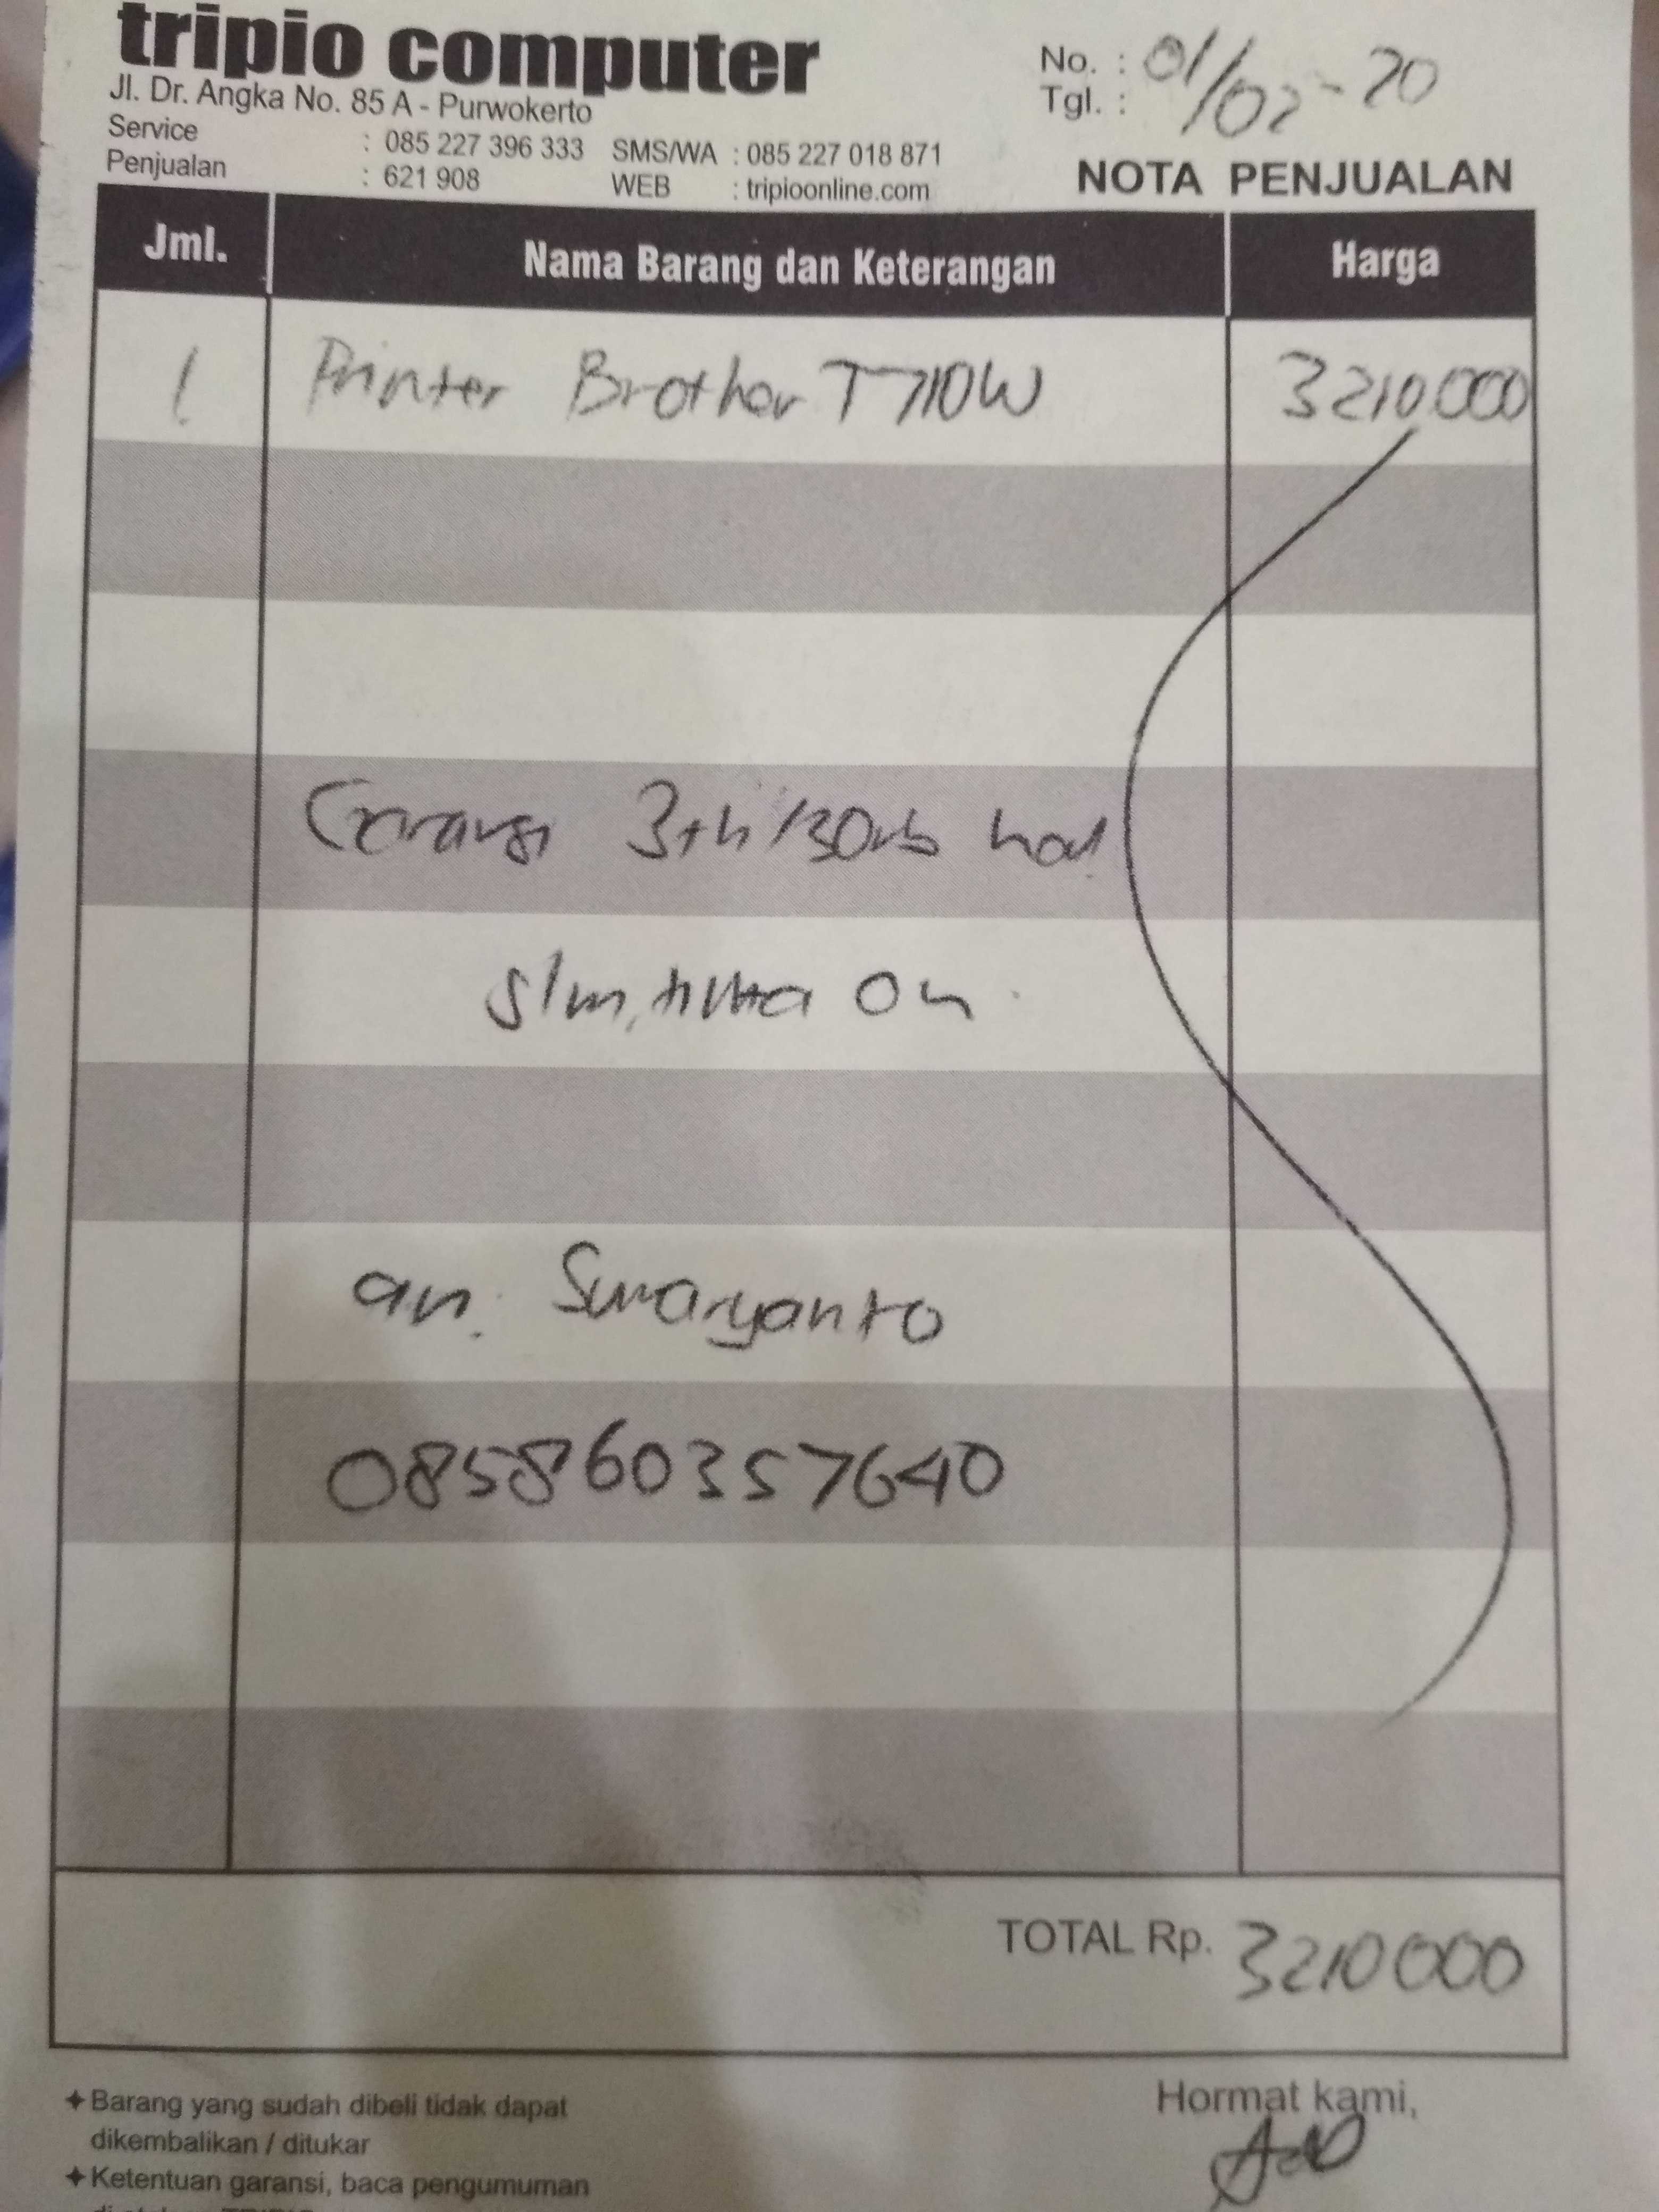 tripio computer
Jl. Dr. Angka No. 85 A - Purwokerto
Service : 085 227 396 333 SMS/WA : 085 227 018 871
Penjualan : 621 908 WEB : tripioonline.com
No. :
Tgl. : 01/02-20
NOTA PENJUALAN
Jml. Nama Barang dan Keterangan Harga
1 Printer Brother T710W 3210000
Garansi 3th/30rb hal
on.
an. Suwaryanto
085860357640
TOTAL Rp. 3210000
✦ Barang yang sudah dibeli tidak dapat
dikembalikan / ditukar
✦ Ketentuan garansi, baca pengumuman
Hormat kami,